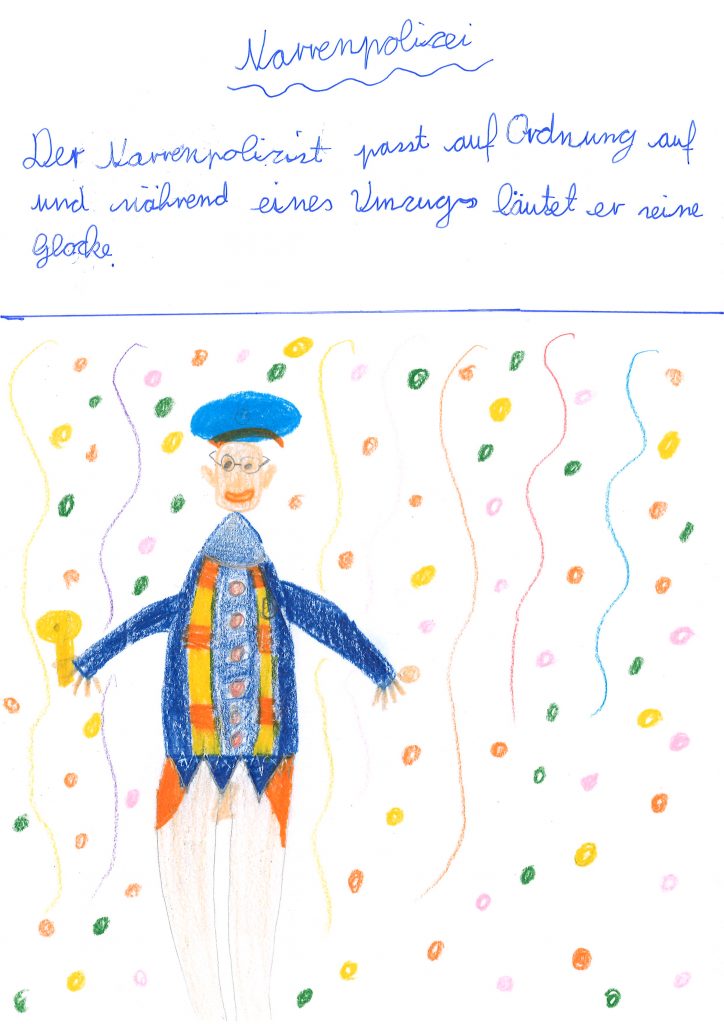 Narrenpolizei
Der Narrenpolizist passt auf Ordnung auf
und während eines Umzugs läutet er seine
Glocke.